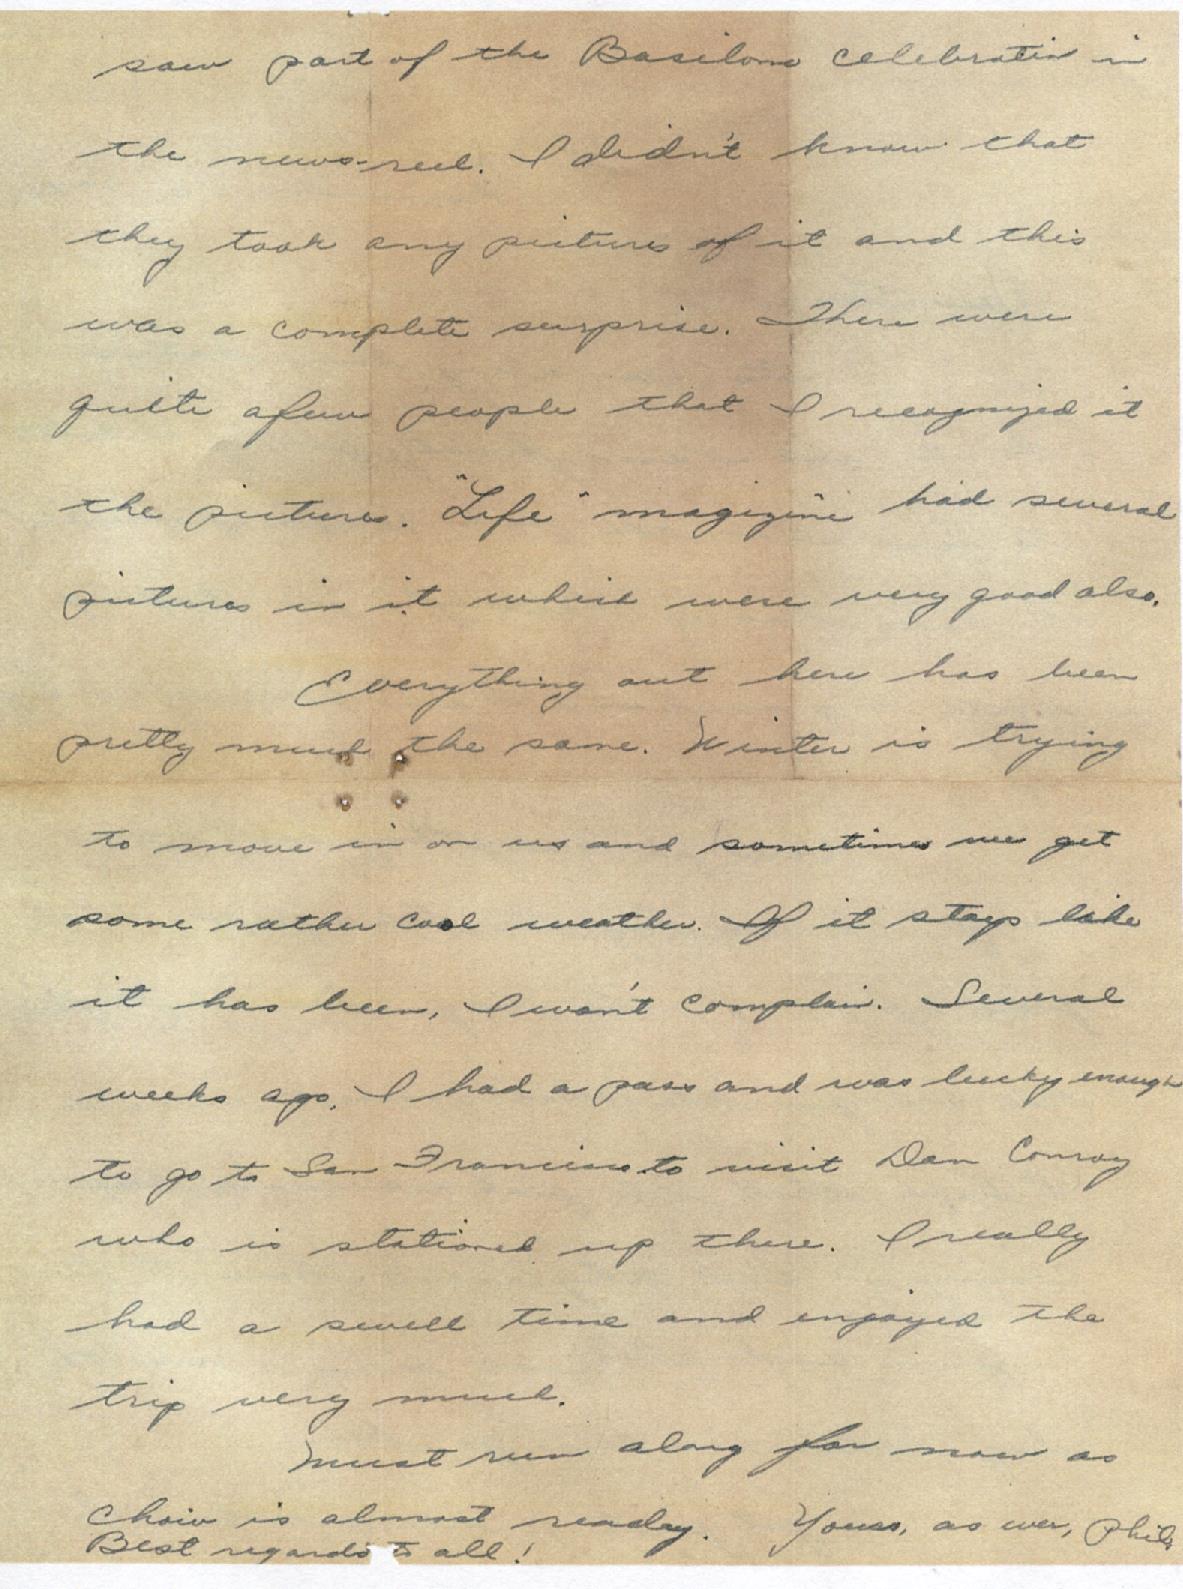 saw part of the Basilone celebration in
the news-reel. I didn't know that
they took any pictures of it and this
was a complete surprise. There were
quite a few people that I recognized it
the pictures. "Life" magizine had several
pictures in it which were very good also.
Everything out here has been
pretty much the same. Winter is trying
to move in on us and sometimes we get
some rather cool weather. If it stays like
it has been, I won't complain. Several
weeks ago, I had a pass and was lucky enough
to go to San Francisco to visit Dan Conroy
who is stationed up there. I really
had a swell time and enjoyed the
trip very much.
Must run along for now as
chow is almost ready. Yours, as ever, Phil.
Best regards to all!